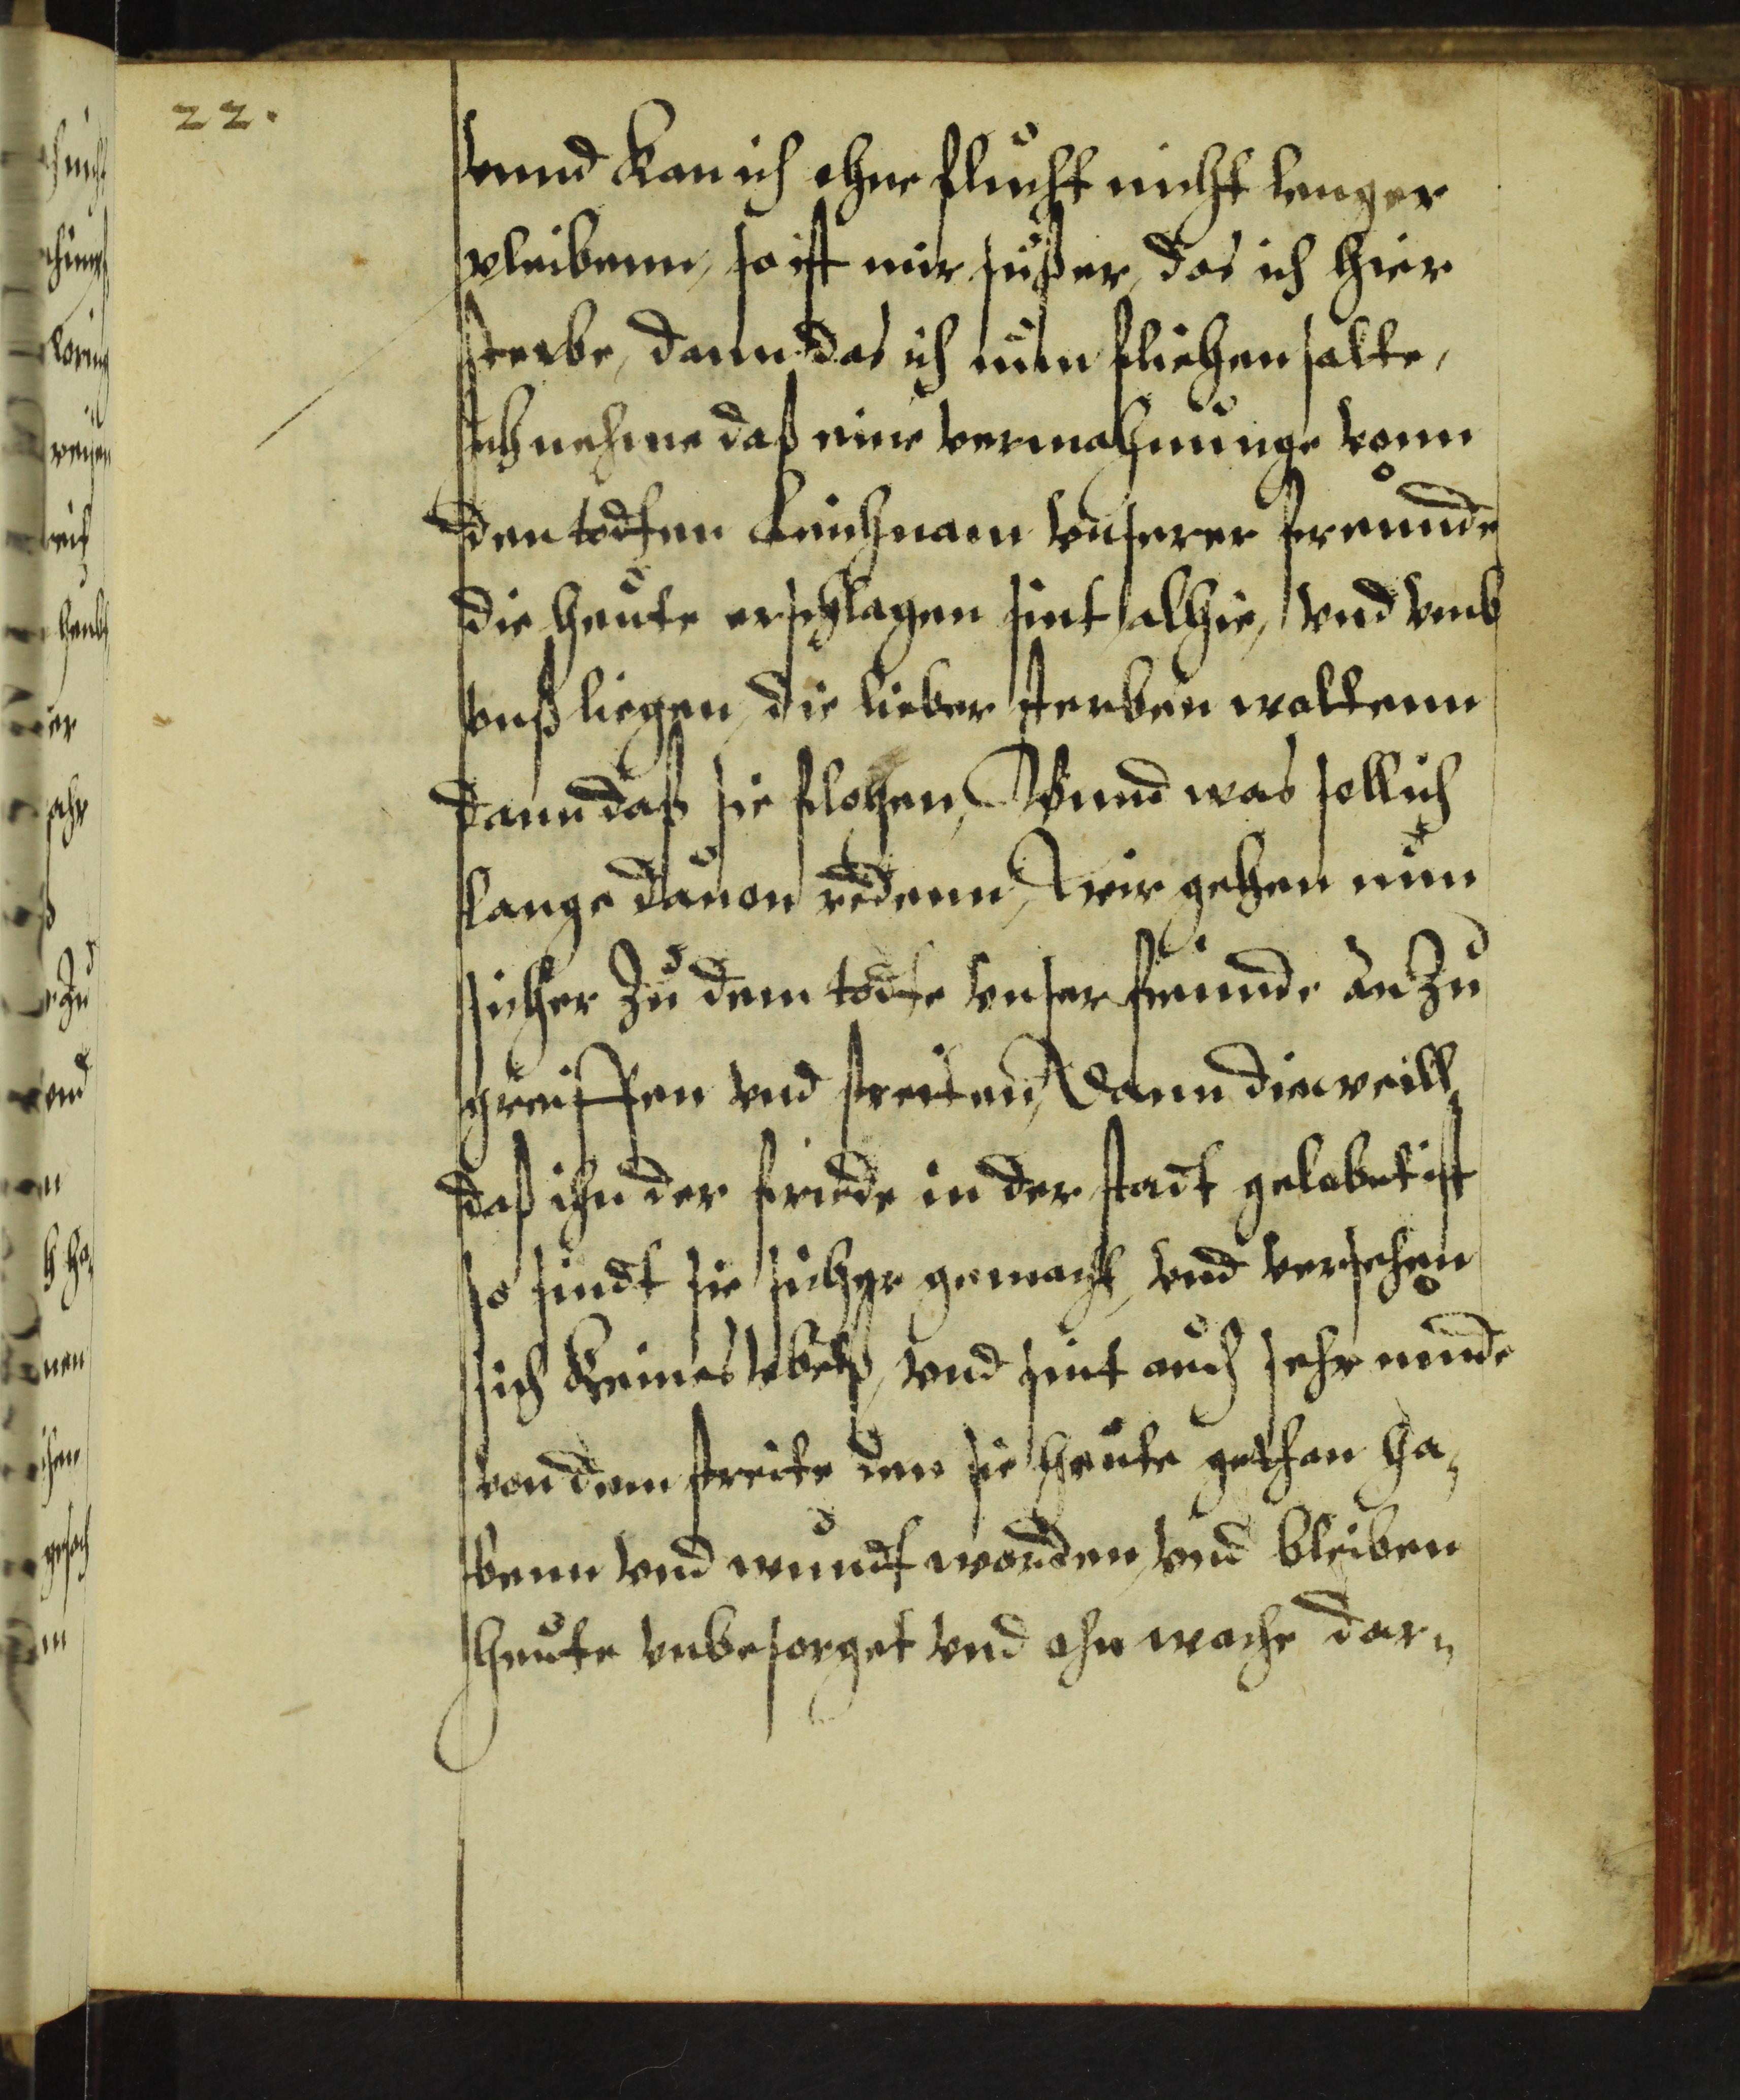 22.
vnnd kan ich ohne flucht nicht lenger
pleibenn, so ist mir süßer, das ich hier
sterbe, dann das ich nün fliehen solte,
Ich nehme daß eine vermahnünge vonn
den todten leichnam vnserer freünde
die heüte erschlagen sint alhie, vnd vmb
vnß liegen, die lieber sterben woltenn
dann daß sie flohen, Vnnd was soll ich
lange dauon redenn, wir gehen nün
sicher Zü dem todte vnser feinde an Zü
greiffen vnd streiten, Dann dieweill
daß ihn der friede in der stadt gelobet ist
so sindt sie sicher gemacht, vnd versehen
sich keines vbelß, vnd sint auch sehr müde
von dem streite den sie heüte gethan ha,
benn vnd wündt worden, vnd bleiben
heüte vnbesorget vnd ohn wache dar,